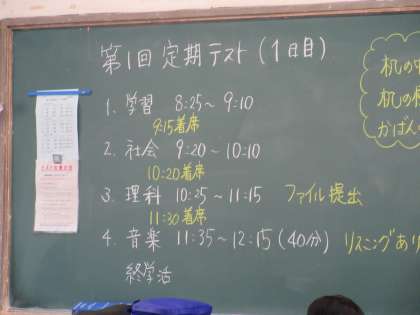 第1回定期テスト(1日目)
1. 学習 8:25～9:10
9:15着席
2. 社会 9:20～10:10
10:20着席
3. 理科 10:25～11:15 ファイル提出
11:30着席
4. 音楽 11:35～12:15(40分) リスニングあり
終学活
机の
机の
かばん